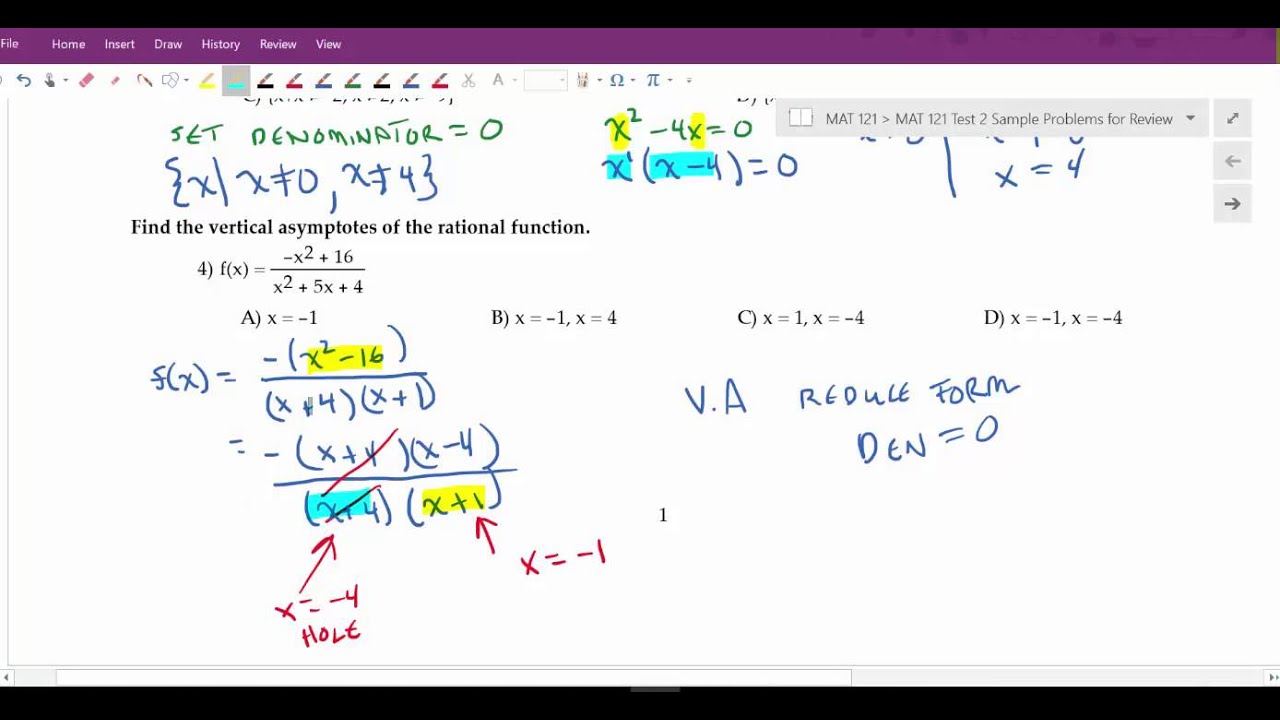 File Home Insert Draw History Review View
MAT 121 > MAT 121 Test 2 Sample Problems for Review
SET DENOMINATOR = 0
x² - 4x = 0
{x| x≠0, x≠4}
x¹(x-4) = 0
x = 4
Find the vertical asymptotes of the rational function.
4) f(x) = (–x2 + 16)/(x2 + 5x + 4)
A) x = –1 B) x = –1, x = 4 C) x = 1, x = –4 D) x = –1, x = –4
f(x) = -(x²-16)/((x+4)(x+1))
= -(x+4)(x-4)/((x+4)(x+1))
V.A REDUCE FORM
DEN = 0
1
x = -1
x = -4
HOLE